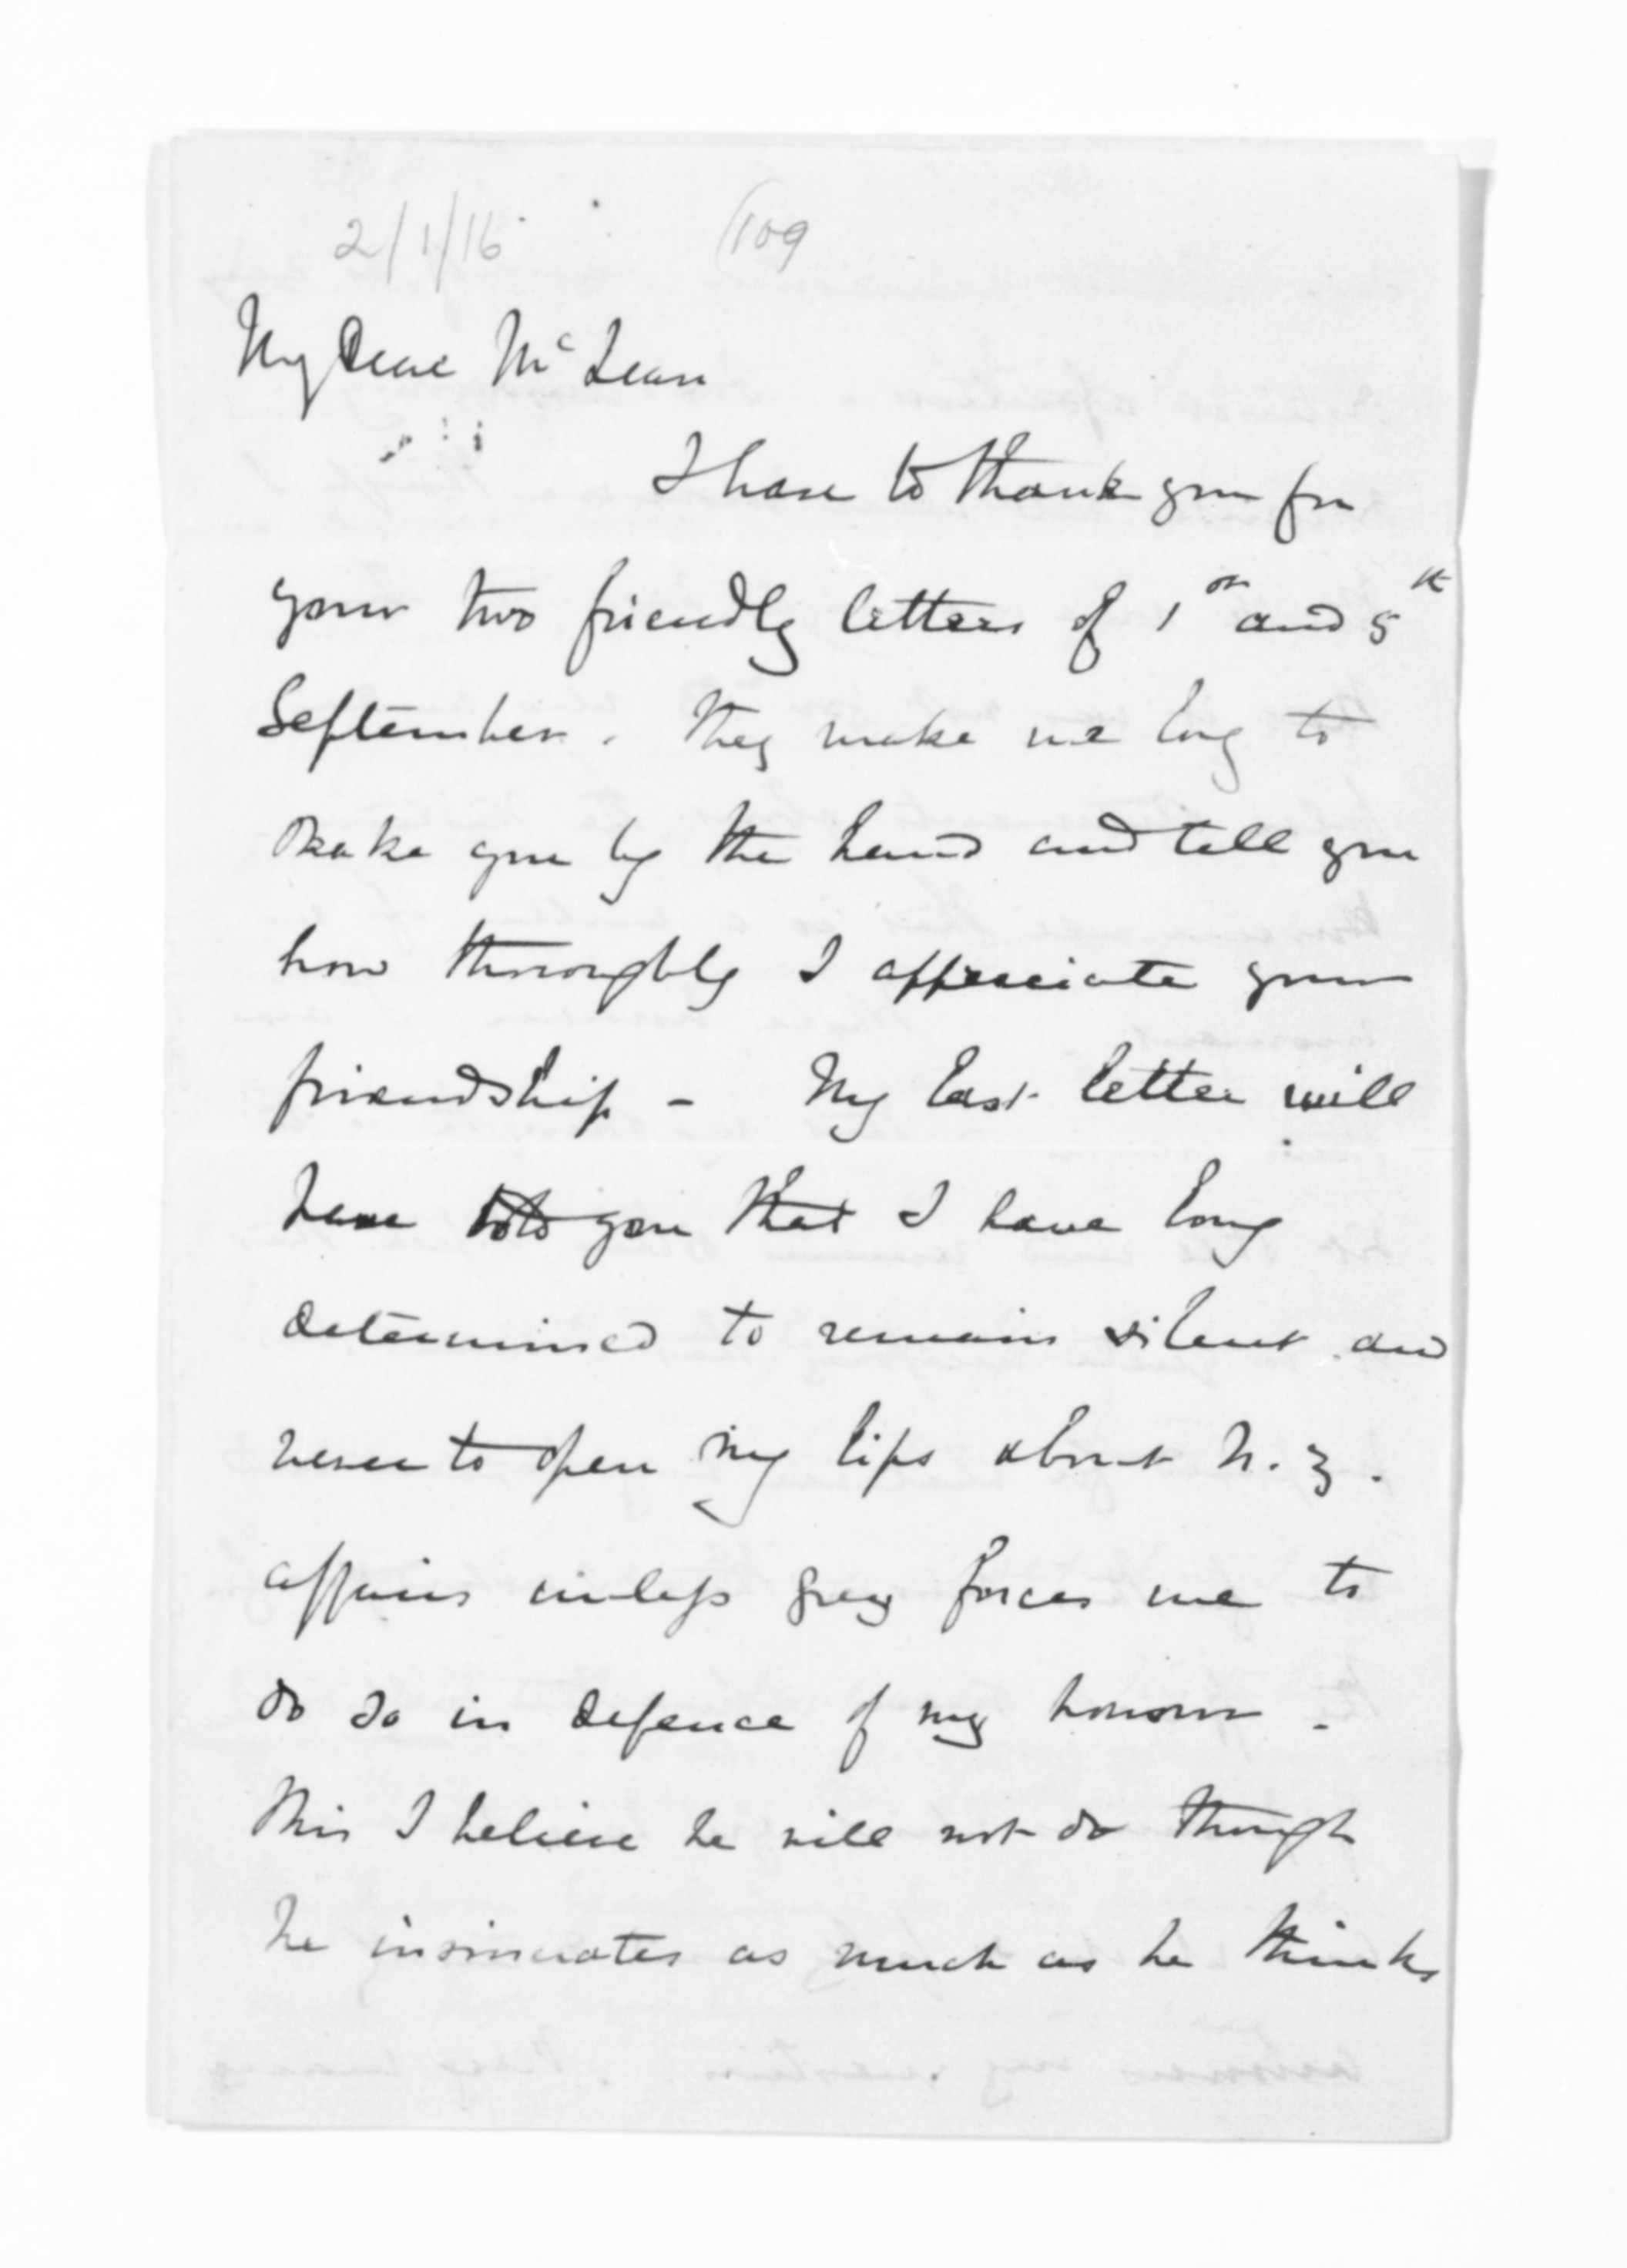 2/1/16 (109
My Dear McLean
I have to thank you for
your two friendly letters of 1st and 5th
September. They make me long to
shake you by the hand and tell you
how thoroughly I appreciate your
friendship - My last letter will
have told you that I have long
determined to remain silent and
never to open my lips about N.Z.
affairs unless Grey forces me to
do so in defence of my honour.
This I believe he will not do though
he insinuates as much as he thinks